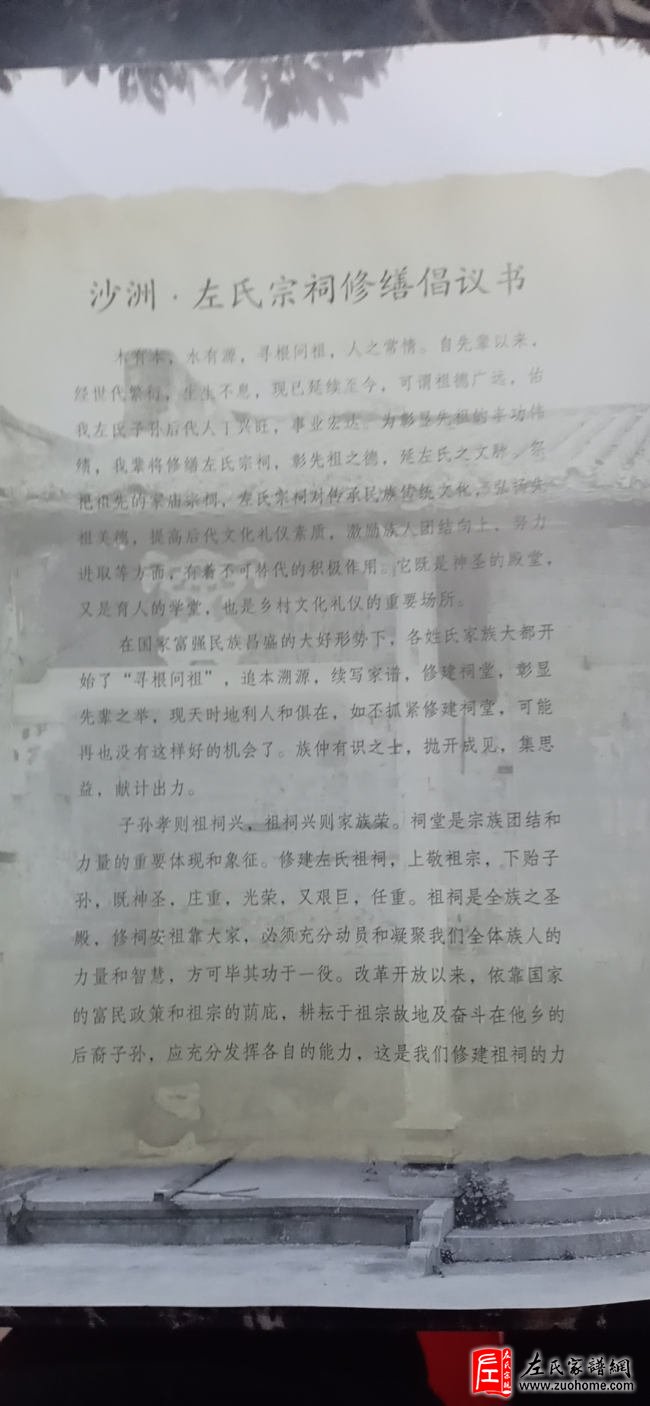 沙洲·左氏宗祠修缮倡议书
木有本，水有源，寻根问祖，人之常情。自先辈以来，
经世代繁衍，生生不息，现已延续至今，可谓祖德广远，佑
我左氏子孙后代人丁兴旺，事业宏达。为彰显先祖的丰功伟
绩，我辈将修缮左氏宗祠，彰先祖之德，延左氏之文脉。祭
祀祖先的家庙宗祠，左氏宗祠对传承民族传统文化，弘扬先
祖美德，提高后代文化礼仪素质，激励族人团结向上，努力
进取等方面，有着不可替代的积极作用。它既是神圣的殿堂，
又是育人的学堂，也是乡村文化礼仪的重要场所。
在国家富强民族昌盛的大好形势下，各姓氏家族大都开
始了“寻根问祖”，追本溯源，续写家谱，修建祠堂，彰显
先辈之举，现天时地利人和俱在，如不抓紧修建祠堂，可能
再也没有这样好的机会了。族仲有识之士，抛开成见，集思
益，献计出力。
子孙孝则祖祠兴，祖祠兴则家族荣。祠堂是宗族团结和
力量的重要体现和象征。修建左氏祖祠，上敬祖宗，下贻子
孙，既神圣，庄重，光荣，又艰巨，任重。祖祠是全族之圣
殿，修祠安祖靠大家，必须充分动员和凝聚我们全体族人的
力量和智慧，方可毕其功于一役。改革开放以来，依靠国家
的富民政策和祖宗的荫庇，耕耘于祖宗故地及奋斗在他乡的
后裔子孙，应充分发挥各自的能力，这是我们修建祖祠的力
左氏家谱網
www.zuohome.com